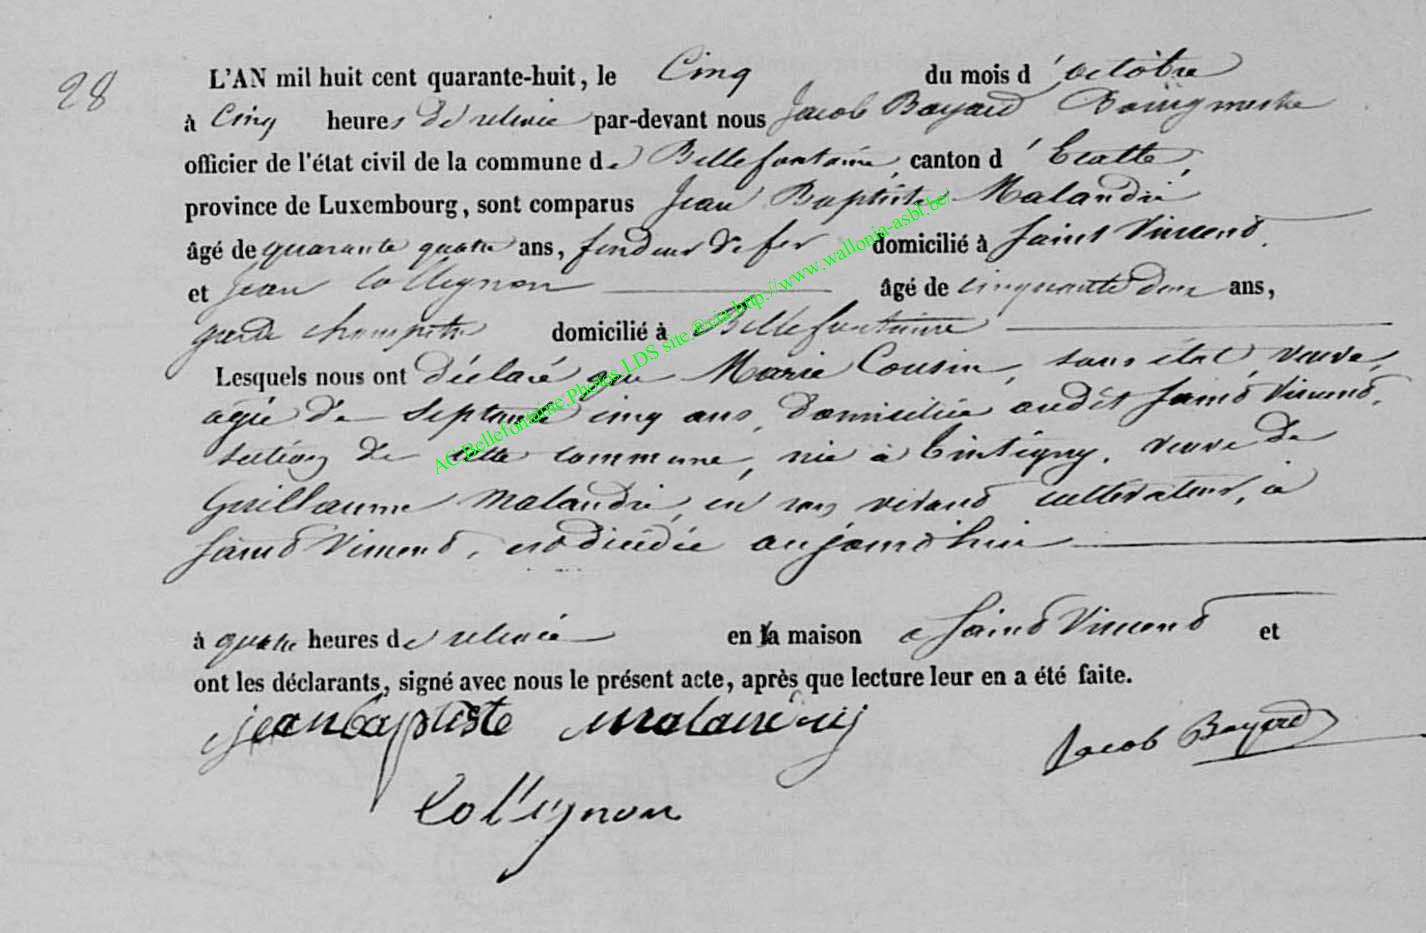 28
L'AN mil huit cent quarante-huit, le Cinq du mois d'octobre
à Cinq heures de relevée par-devant nous Jacob Bayard Bourgmestre
officier de l'état civil de la commune de Bellefontaine, canton d'Etalle,
province de Luxembourg, sont comparus Jean Baptiste Malandré
âgé de quarante quatre ans, fendeur de fer domicilié à Saint Vincent.
et Jean Collignon âgé de cinquante deux ans,
garde champêtre domicilié à Bellefontaine
Lesquels nous ont déclaré que Marie Cousin, sans état, veuve,
agée de septante cinq ans, domiciliée audit Saint Vincent,
section de cette commune, née à Tintigny, veuve de
Guillaume Malandré, en son vivant cultivateur, à
Saint Vincent, est décédée aujourd'hui
à quatre heures de relevée en la maison à Saint Vincent et
ont les déclarants, signé avec nous le présent acte, après que lecture leur en a été faite.
jean baptiste
Jacob Bayard
Collignon
AC Bellefontaine; Photos LDS site @ via http://www.wallonia-asbl.be/